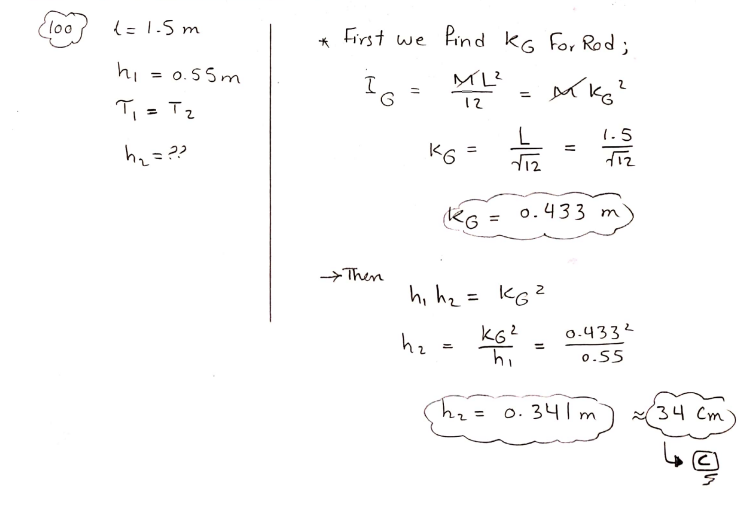 100 l = 1.5 m
h₁ = 0.55 m
T₁ = T₂
h₂ = ??
* First we find kG For Rod ;
I_G = ML²/12 = M kG²
kG = L/√12 = 1.5/√12
kG = 0.433 m
→ Then
h₁ h₂ = kG²
h₂ = kG²/h₁ = 0.433²/0.55
h₂ = 0.341 m ≈ 34 Cm
↳ C